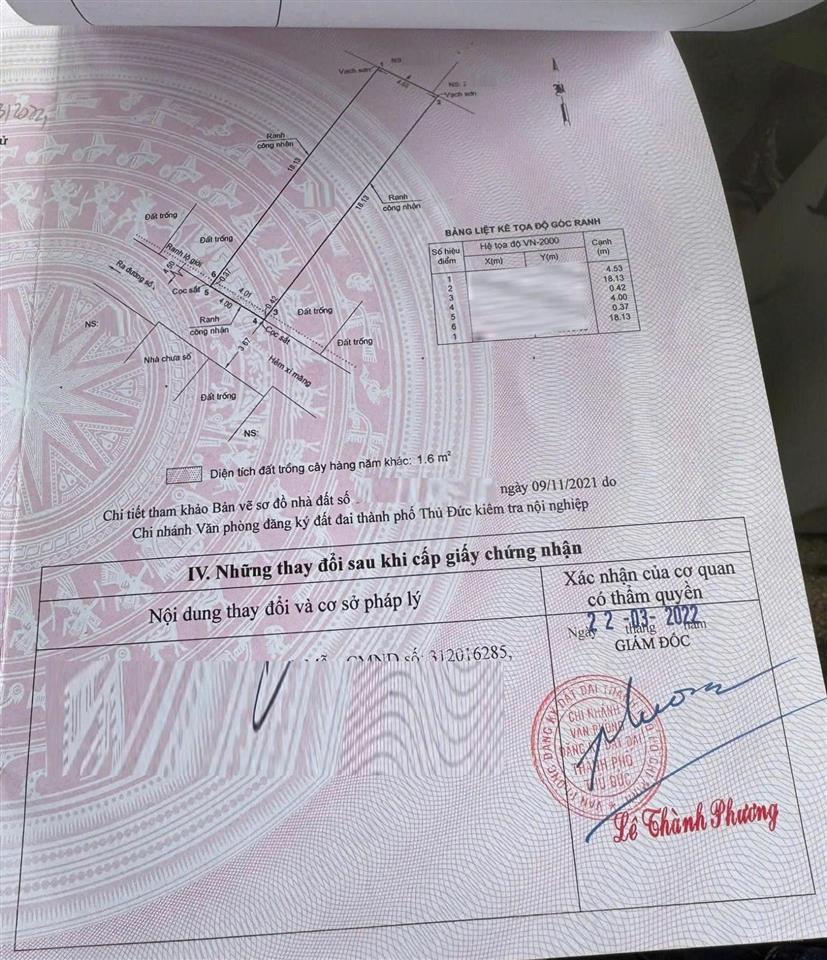 1
NS:
Vạch sơn
4.53
NS: 2
Vạch sơn
2
Ranh
công nhận
18.13
18.13
Ranh
công nhận
BẢNG LIỆT KÊ TỌA ĐỘ GÓC RANH
Số hiệu điểm
Hệ tọa độ VN-2000
Cạnh (m)
X(m)
Y(m)
1
4.53
2
18.13
3
0.42
4
4.00
5
0.37
6
18.13
1
Đất trống
Đất trống
Ranh lộ giới
4.50
Ra đường số
Cọc sắt
6
0.37
5
4.01
4.00
0.42
3
Đất trống
Ranh
công nhận
4
Cọc sắt
NS:
3.67
Hẻm xi măng
Đất trống
Nhà chưa số
Đất trống
NS:
Diện tích đất trồng cây hàng năm khác: 1.6 m²
Chi tiết tham khảo Bản vẽ sơ đồ nhà đất số
ngày 09/11/2021 do
Chi nhánh Văn phòng đăng ký đất đai thành phố Thủ Đức kiểm tra nội nghiệp
IV. Những thay đổi sau khi cấp giấy chứng nhận
Nội dung thay đổi và cơ sở pháp lý
Xác nhận của cơ quan
có thẩm quyền
Ngày tháng năm
22-03-2022
GIÁM ĐỐC
CMND số: 312016285,
CHI NHÁNH
VĂN PHÒNG
ĐĂNG KÝ ĐẤT ĐAI
THÀNH PHỐ
THỦ ĐỨC
Lê Thành Phương